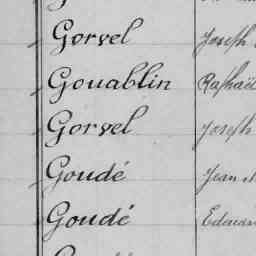 Gorvel Joseph
Gouablin Raphaël
Gorvel Joseph
Goudé Jean
Goudé